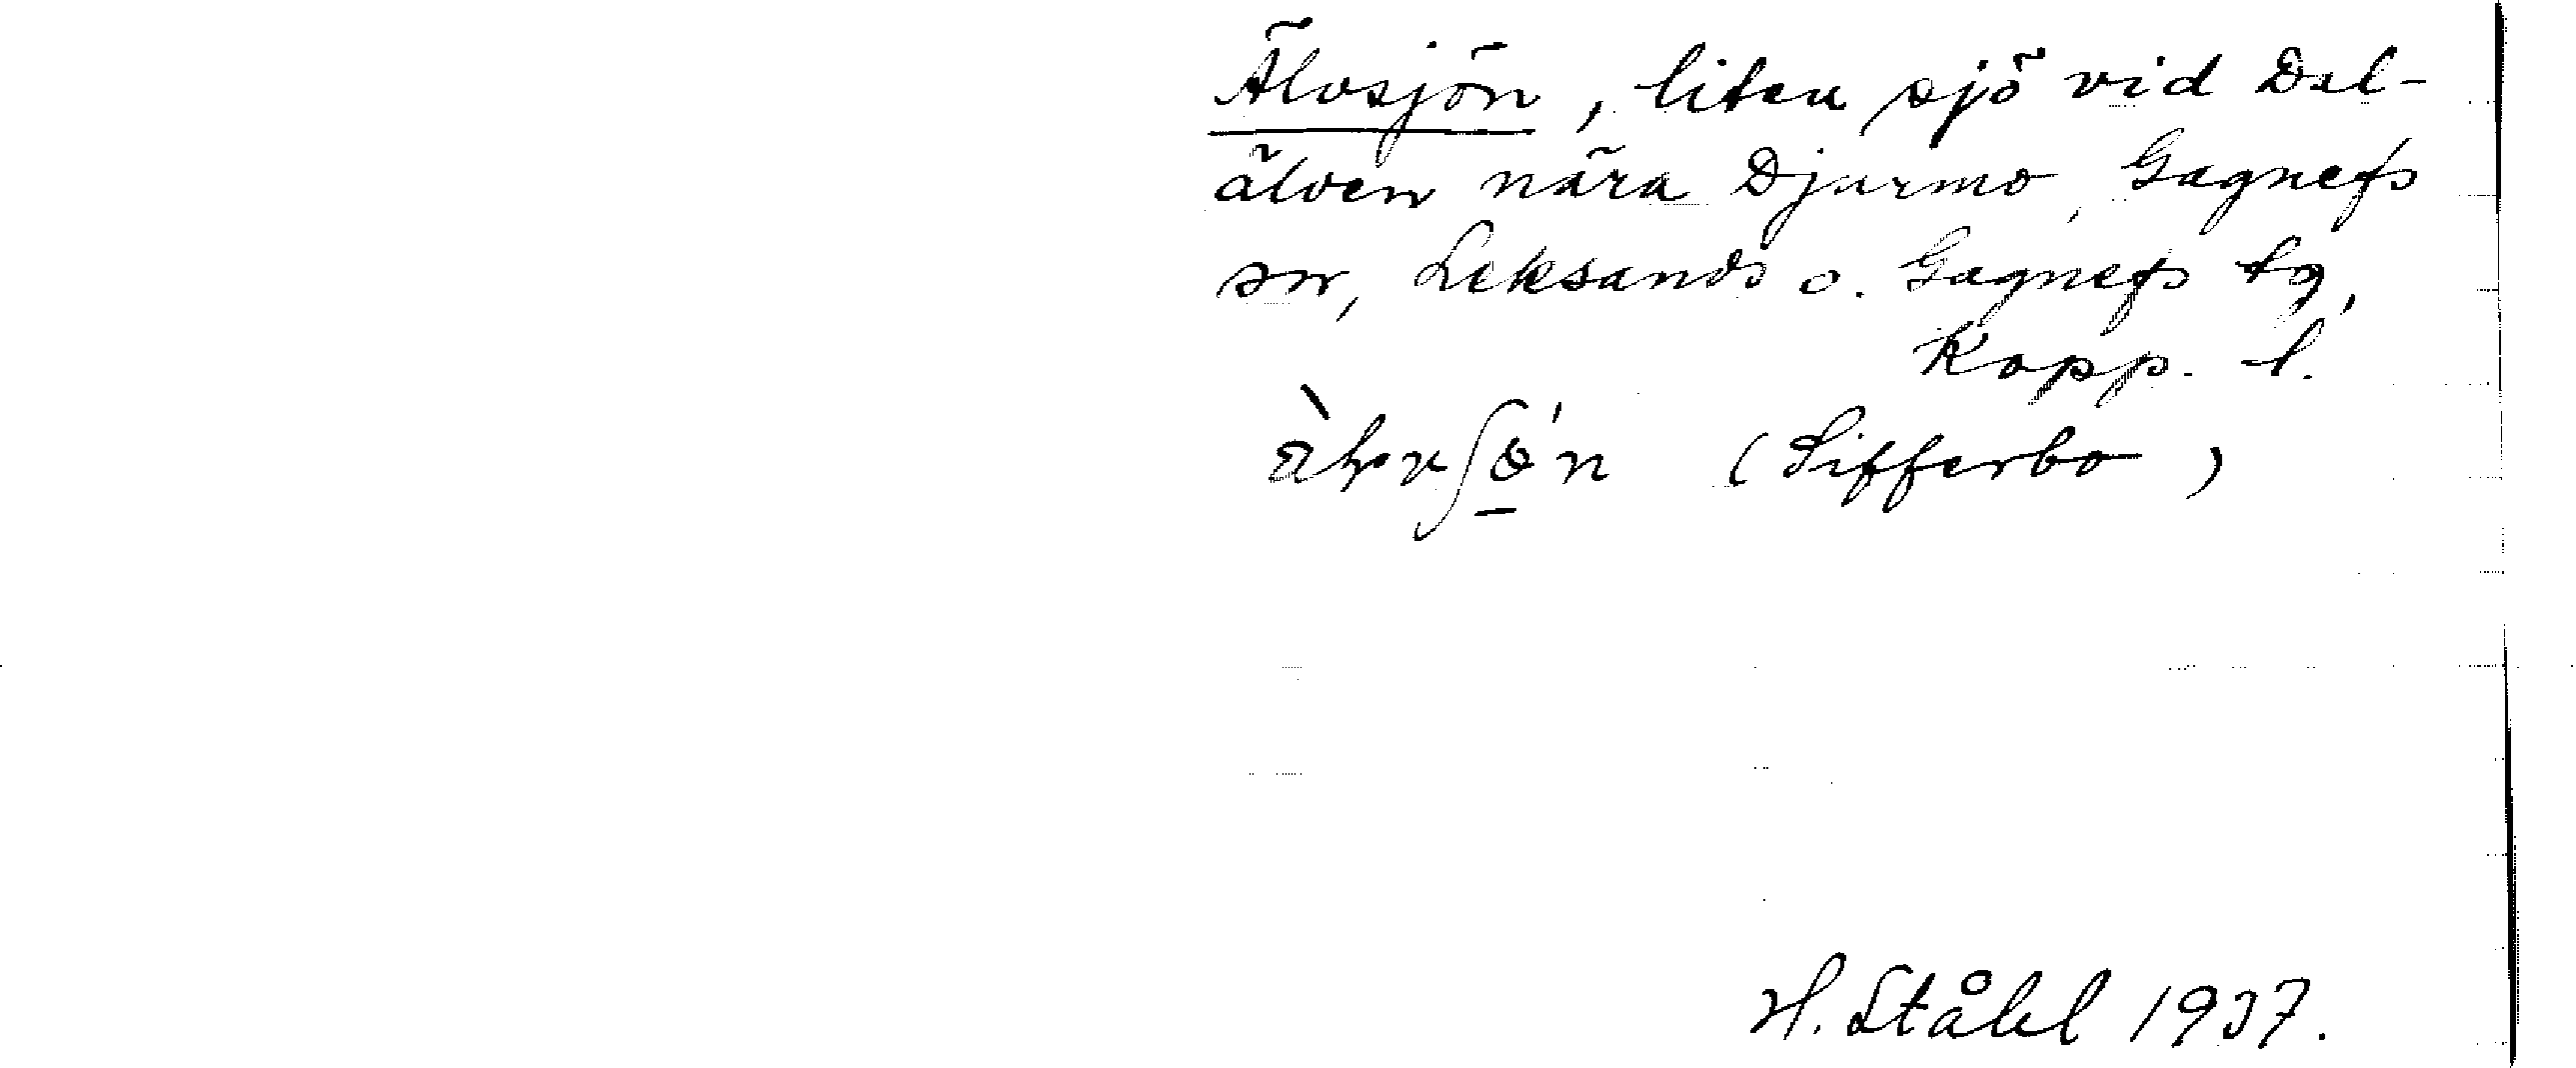 Älvsjön, liten sjö vid Dal-
älven nära Djurmo, Gagnefs
sn, Leksands o. Gagnefs tg,
Kopp. l.
(Sifferbo)
H. Ståhl 1937.